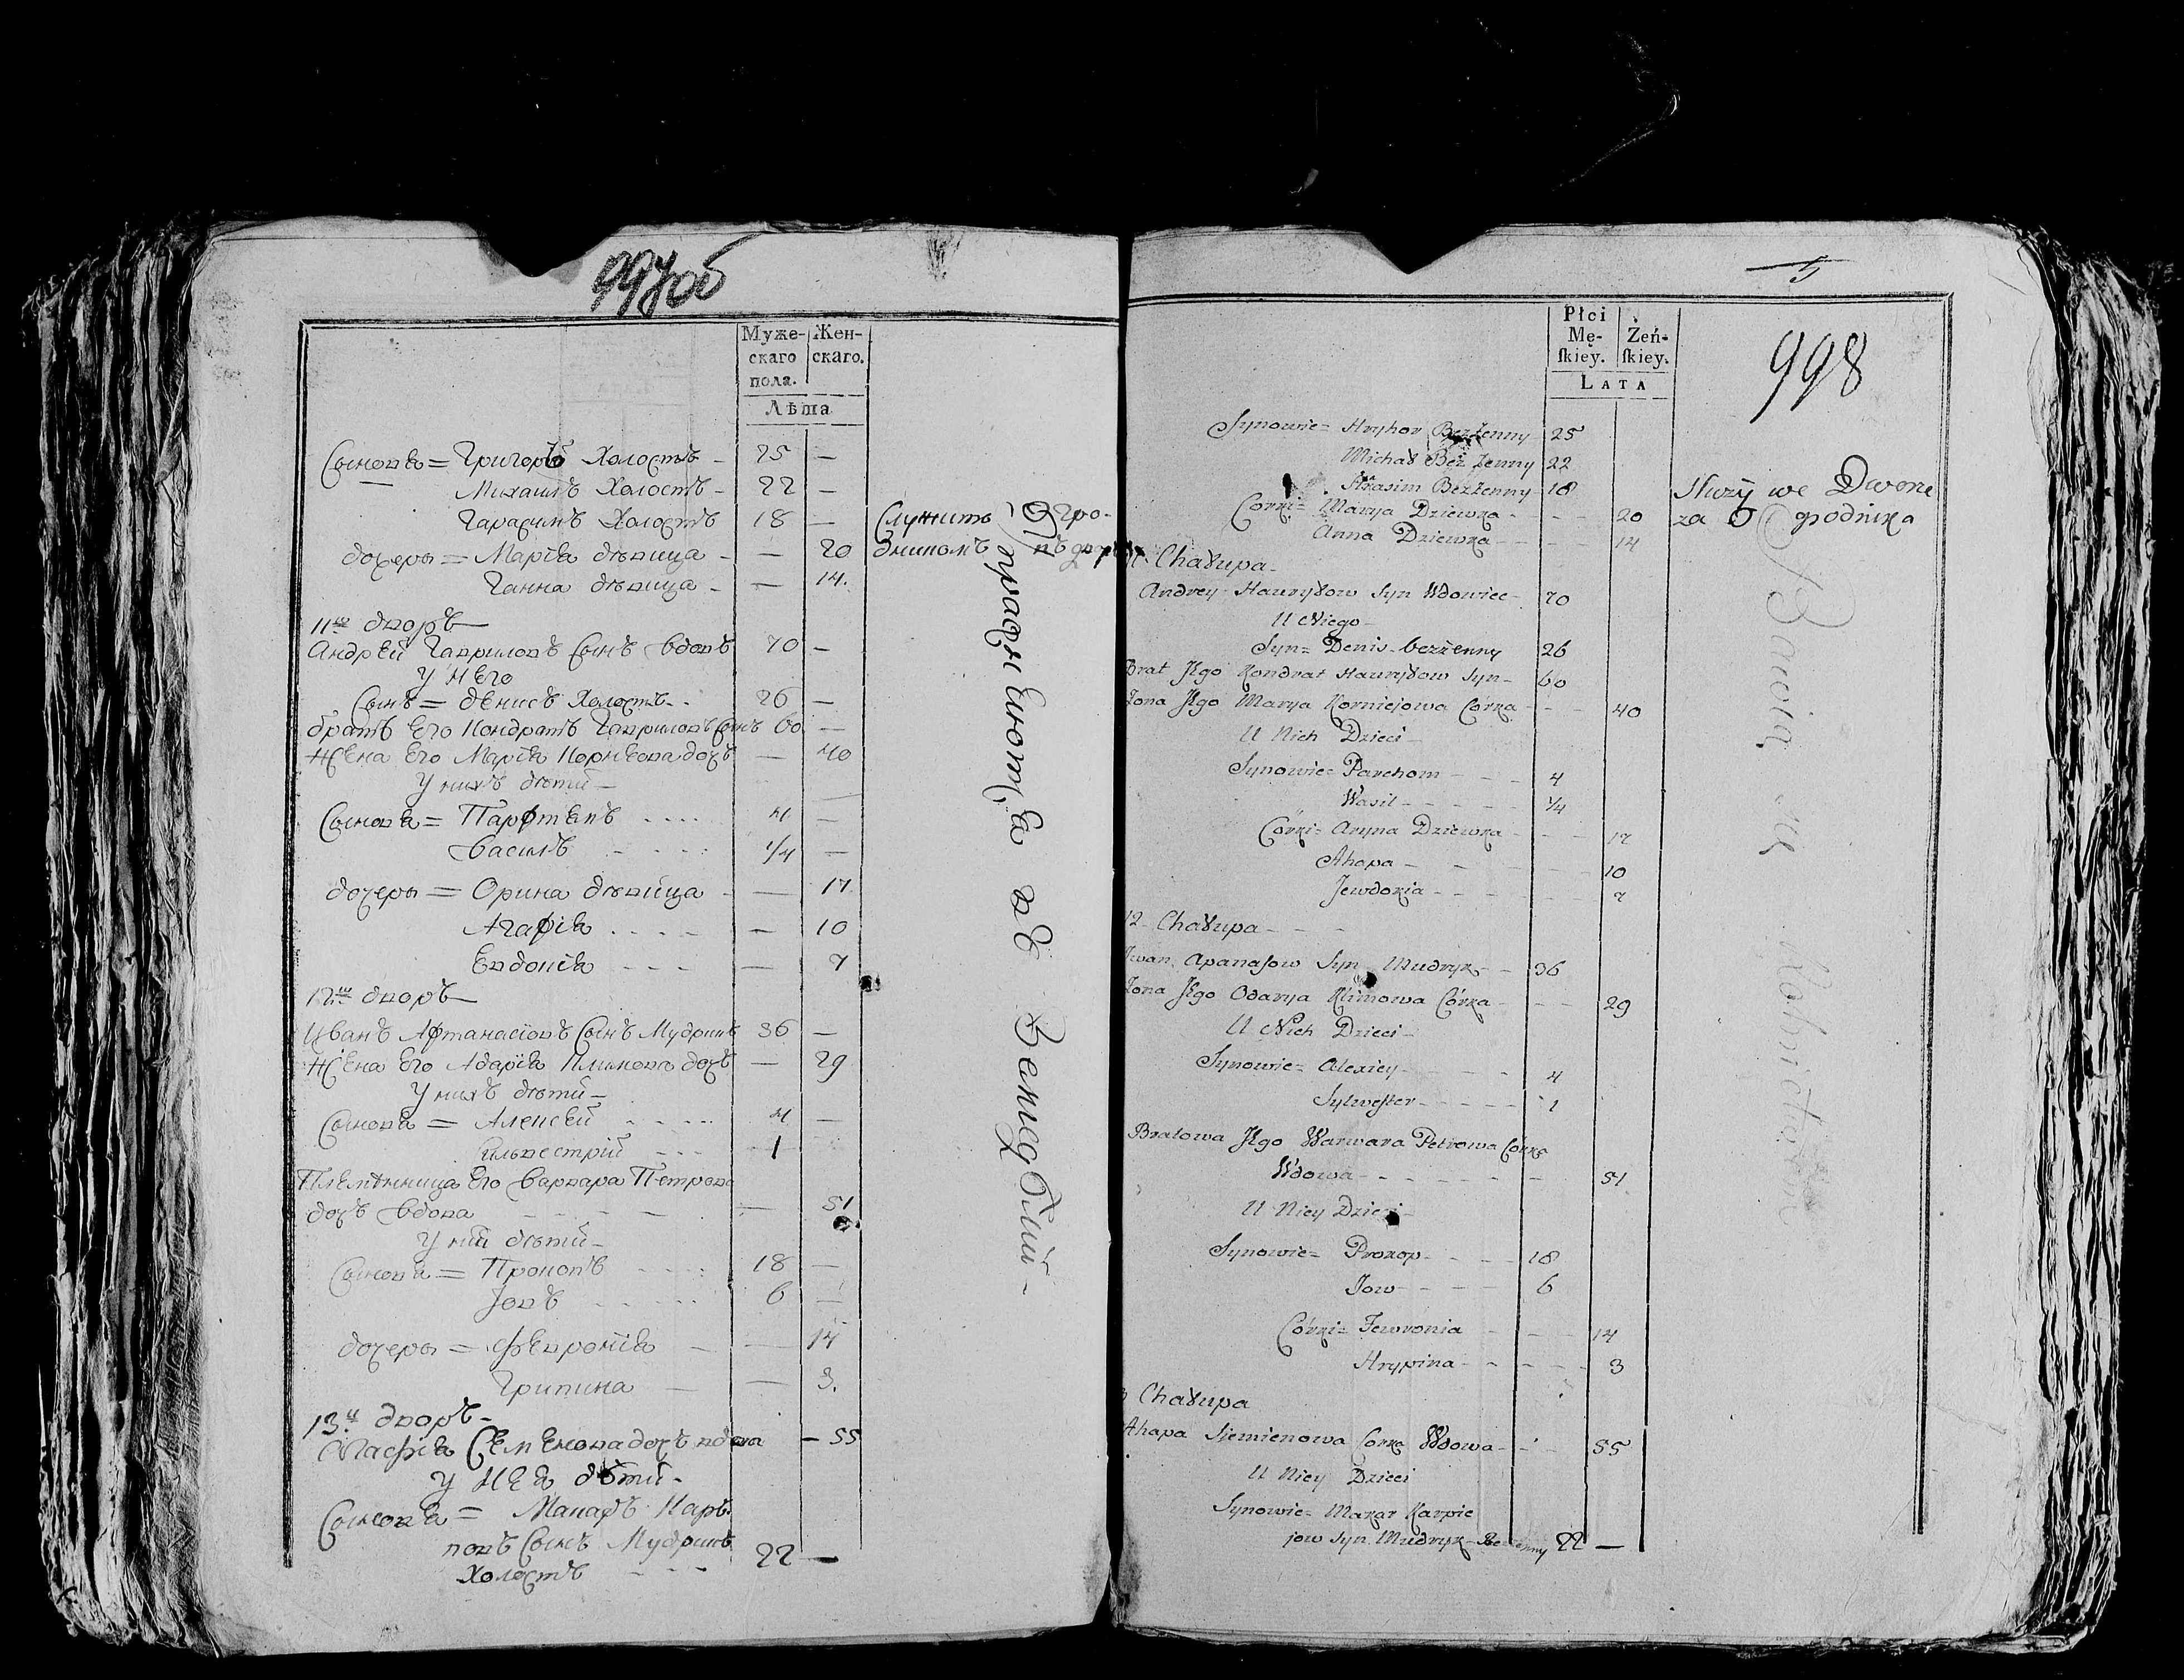 997об
Муже-
скаго
пола.
Жен-
скаго.
Лѣта
Сынова = Григорѣ Холостъ - 25 -
Михаилъ Холостъ - 22 -
Гарасимъ Холостъ 18 -
дочеры = Марія дѣвица - - 20
Ганна дѣвица - - 14.
Служитъ Огро-
дникомъ
11й дворъ
Андрей Гавриловъ Сынъ вдовъ 70 -
У него
Сынъ = денисъ Холостъ - 26 -
братъ Его Кондратъ Гавриловъ Сынъ 60 -
Жена Его Марія Корнѣева дочь - 40
У нихъ дѣти -
Сынова = Парфтенъ 4 -
Василъ 1/4 -
дочеры = Орина дѣвица - 17.
Агафія - 10
Евдокія - 7
12й дворъ
Иванъ Афтанасіовъ Сынъ Мудрикъ 36 -
Жена Его Адарія Климова дочь - 29
У нихъ дѣти -
Сынова = Алексѣй 4 -
Силвестрій 1
Племѣнница Его Варвара Петрова
дочь вдова - 51
У ній дѣти -
Сынова = Прокопъ 18 -
Іовъ 6 -
дочеры = Февронія - 14
Грипина - 3.
13й дворъ -
Агафія Семенова дочь вдова - 55
У нея дѣти -
Сынова = Макаръ Карѣ-
повъ Сынъ Мудрикъ
Холостъ 22 -
5
998
Płci
Mę-
ſkiey.
Żeń-
ſkiey.
LATA
Synowie = Hryhor Bezżenny 25
Michał Bezżenny 22
Harasim Bezżenny 18
Corki = Marya Dziewka - - 20
Anna Dziewka - - 14
Służy we Dworze
za Ogrodnika
11. Chałupa -
Andrey Hawryłow Syn Wdowiec 70
U Niego -
Syn = Denis bezżenny 26
Brat Jego Kondrat Hawryłow Syn - 60
Żona Jego Marya Korniejowa Córka - 40
U Nich Dzieci -
Synowie = Parchom - - 4
Wasil - - - 1/4
Córki = Aryna Dziewka - - 17
Ahapa - - - 10
Jewdokia - - - 7
12 Chałupa - - -
Iwan Apanasow Syn Mudryk - - 36
Żona Jego Odarya Klimowa Córka - - 29
U Nich Dzieci -
Synowie = Alexiey - - - 4
Sylwester - - - 1
Bratowa Jego Warwara Petrowa Corka
Wdowa - - - 51
U Niey Dzieci -
Synowie = Prokop - - - 18
Jow - - - 6
Córki = Fewronia - - - 14
Hrypina - - - 3
Chałupa
Ahapa Siemienowa Corka Wdowa - - 55
U Niey Dzieci
Synowie = Makar Karpie
jow Syn Mudryk - Bezżenny 22 -